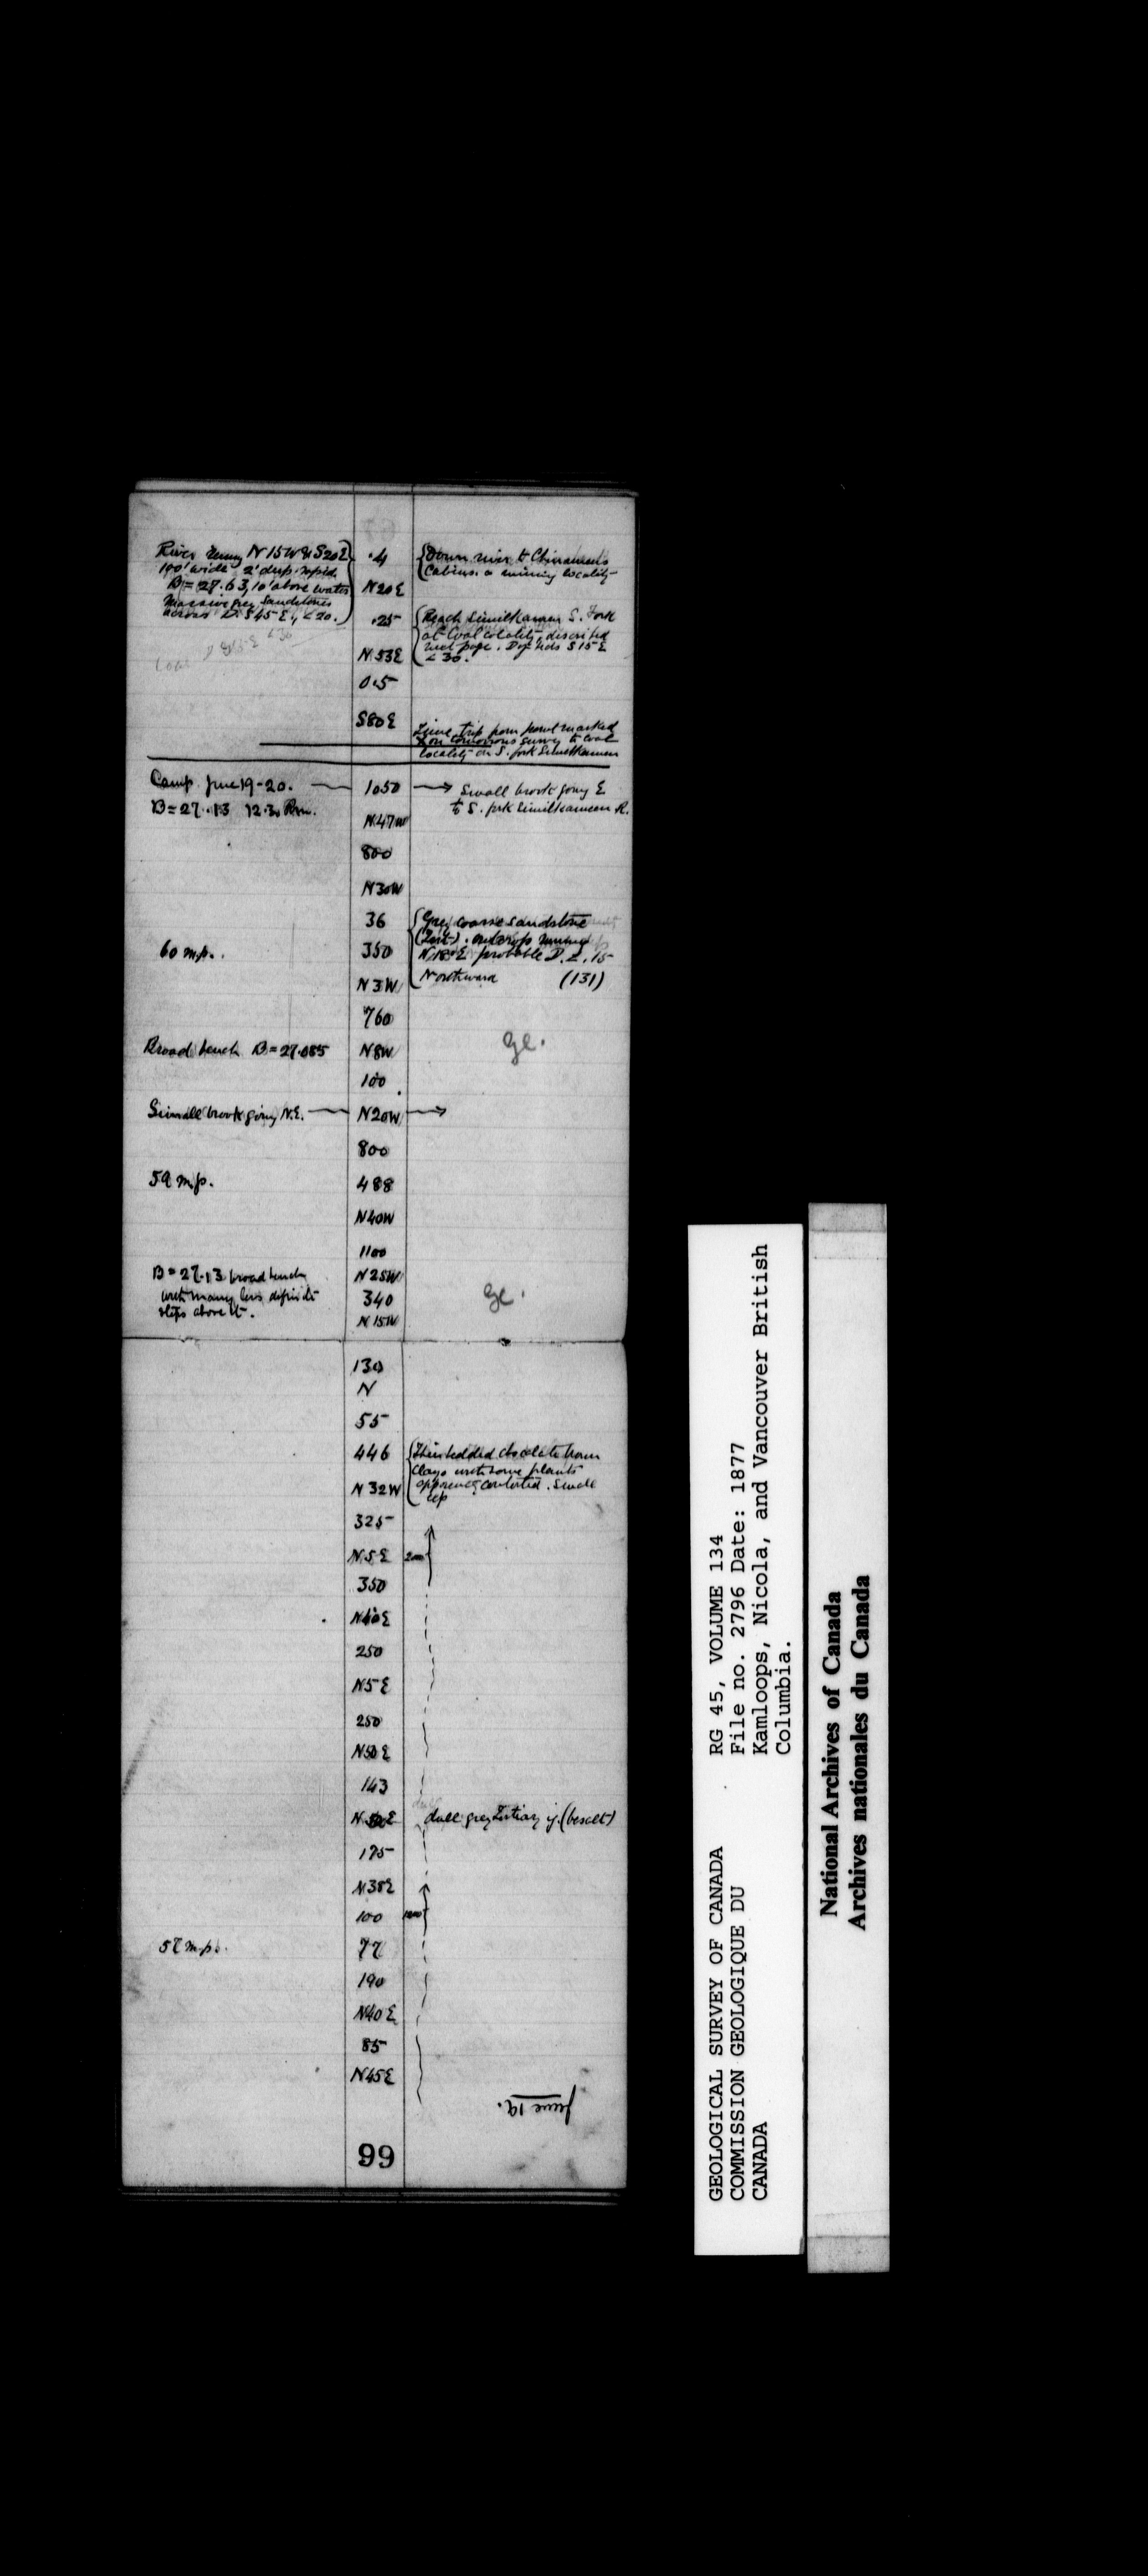 River runng N15W & S20E
100' wide 2' deep. rapid.
B = 27.63, 10' above water
Massive grey Sandstones
across D. S45E., <20.
Coal D S15E <30
.4
N20E
.25
N53E
0.5
S80E
Down river to Chinamens
Cabins. a mining locality
Reach Similkameen S. Fork
at Coal locality, described
next page. Dip beds S15E
<30.
Time trip from point marked
X on tomorrows survey to Coal
locality on S. fork Similkameen
Camp June 19-20.
B = 27.13 12.30 P.m.
1050
Small brook going E
to S. fork Similkameen R.
N47W
800
N30W
36
Grey coarse sandstone
60 m.p.
350
(Tert). outcrop running
N18E probable D. <. 15
N3W
Northward (131)
760
Broad bench B = 27.085
N8W
gc.
100
Small brook going N.E.
N20W
800
59 m.p.
488
N40W
1100
B = 27.13 broad bench
with many less definite
steps above it.
N25W
340
gc.
N15W
130
N
55
446
Thin bedded chocolate brown
clays with some plants
N32W
apparently contorted. Small
exp
325
N5E
2000
350
N40E
250
N5E
250
N50E
143
N50E
dull grey Tertiary ig. (basalt)
175
N38E
100
1200
58 m.p.
77
190
N40E
85
N45E
June 19.
99
GEOLOGICAL SURVEY OF CANADA
COMMISSION GEOLOGIQUE DU
CANADA
RG 45, VOLUME 134
File no. 2796 Date: 1877
Kamloops, Nicola, and Vancouver British
Columbia.
National Archives of Canada
Archives nationales du Canada